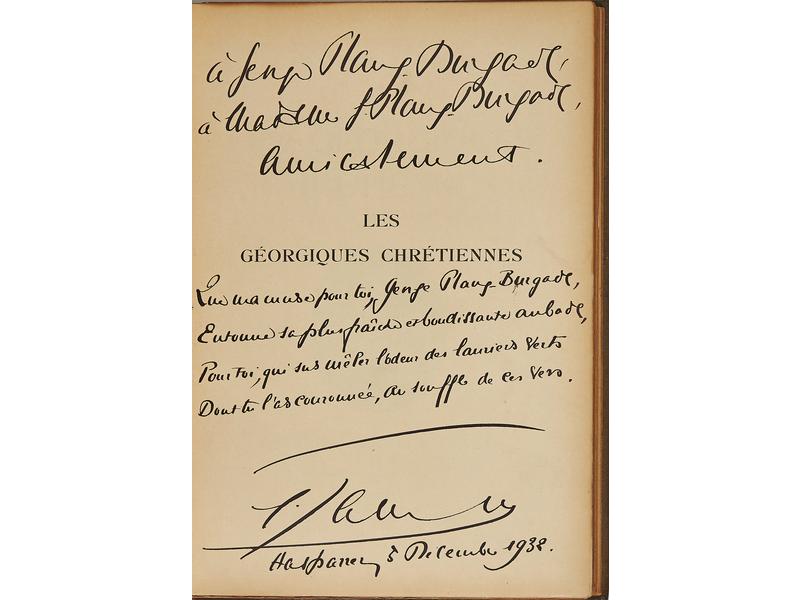 à George Plang-Burgade,
à Madame G. Plang-Burgade,
Amicalement.
LES
GÉORGIQUES CHRÉTIENNES
Que ma muse pour toi, George Plang-Burgade,
Entonne sa plus fraîche et bondissante aubade,
Pour toi, qui sus mêler l'odeur des lauriers verts
Dont tu l'as couronnée, au souffle de ces vers.
Hasparren, 5 Décembre 1932.